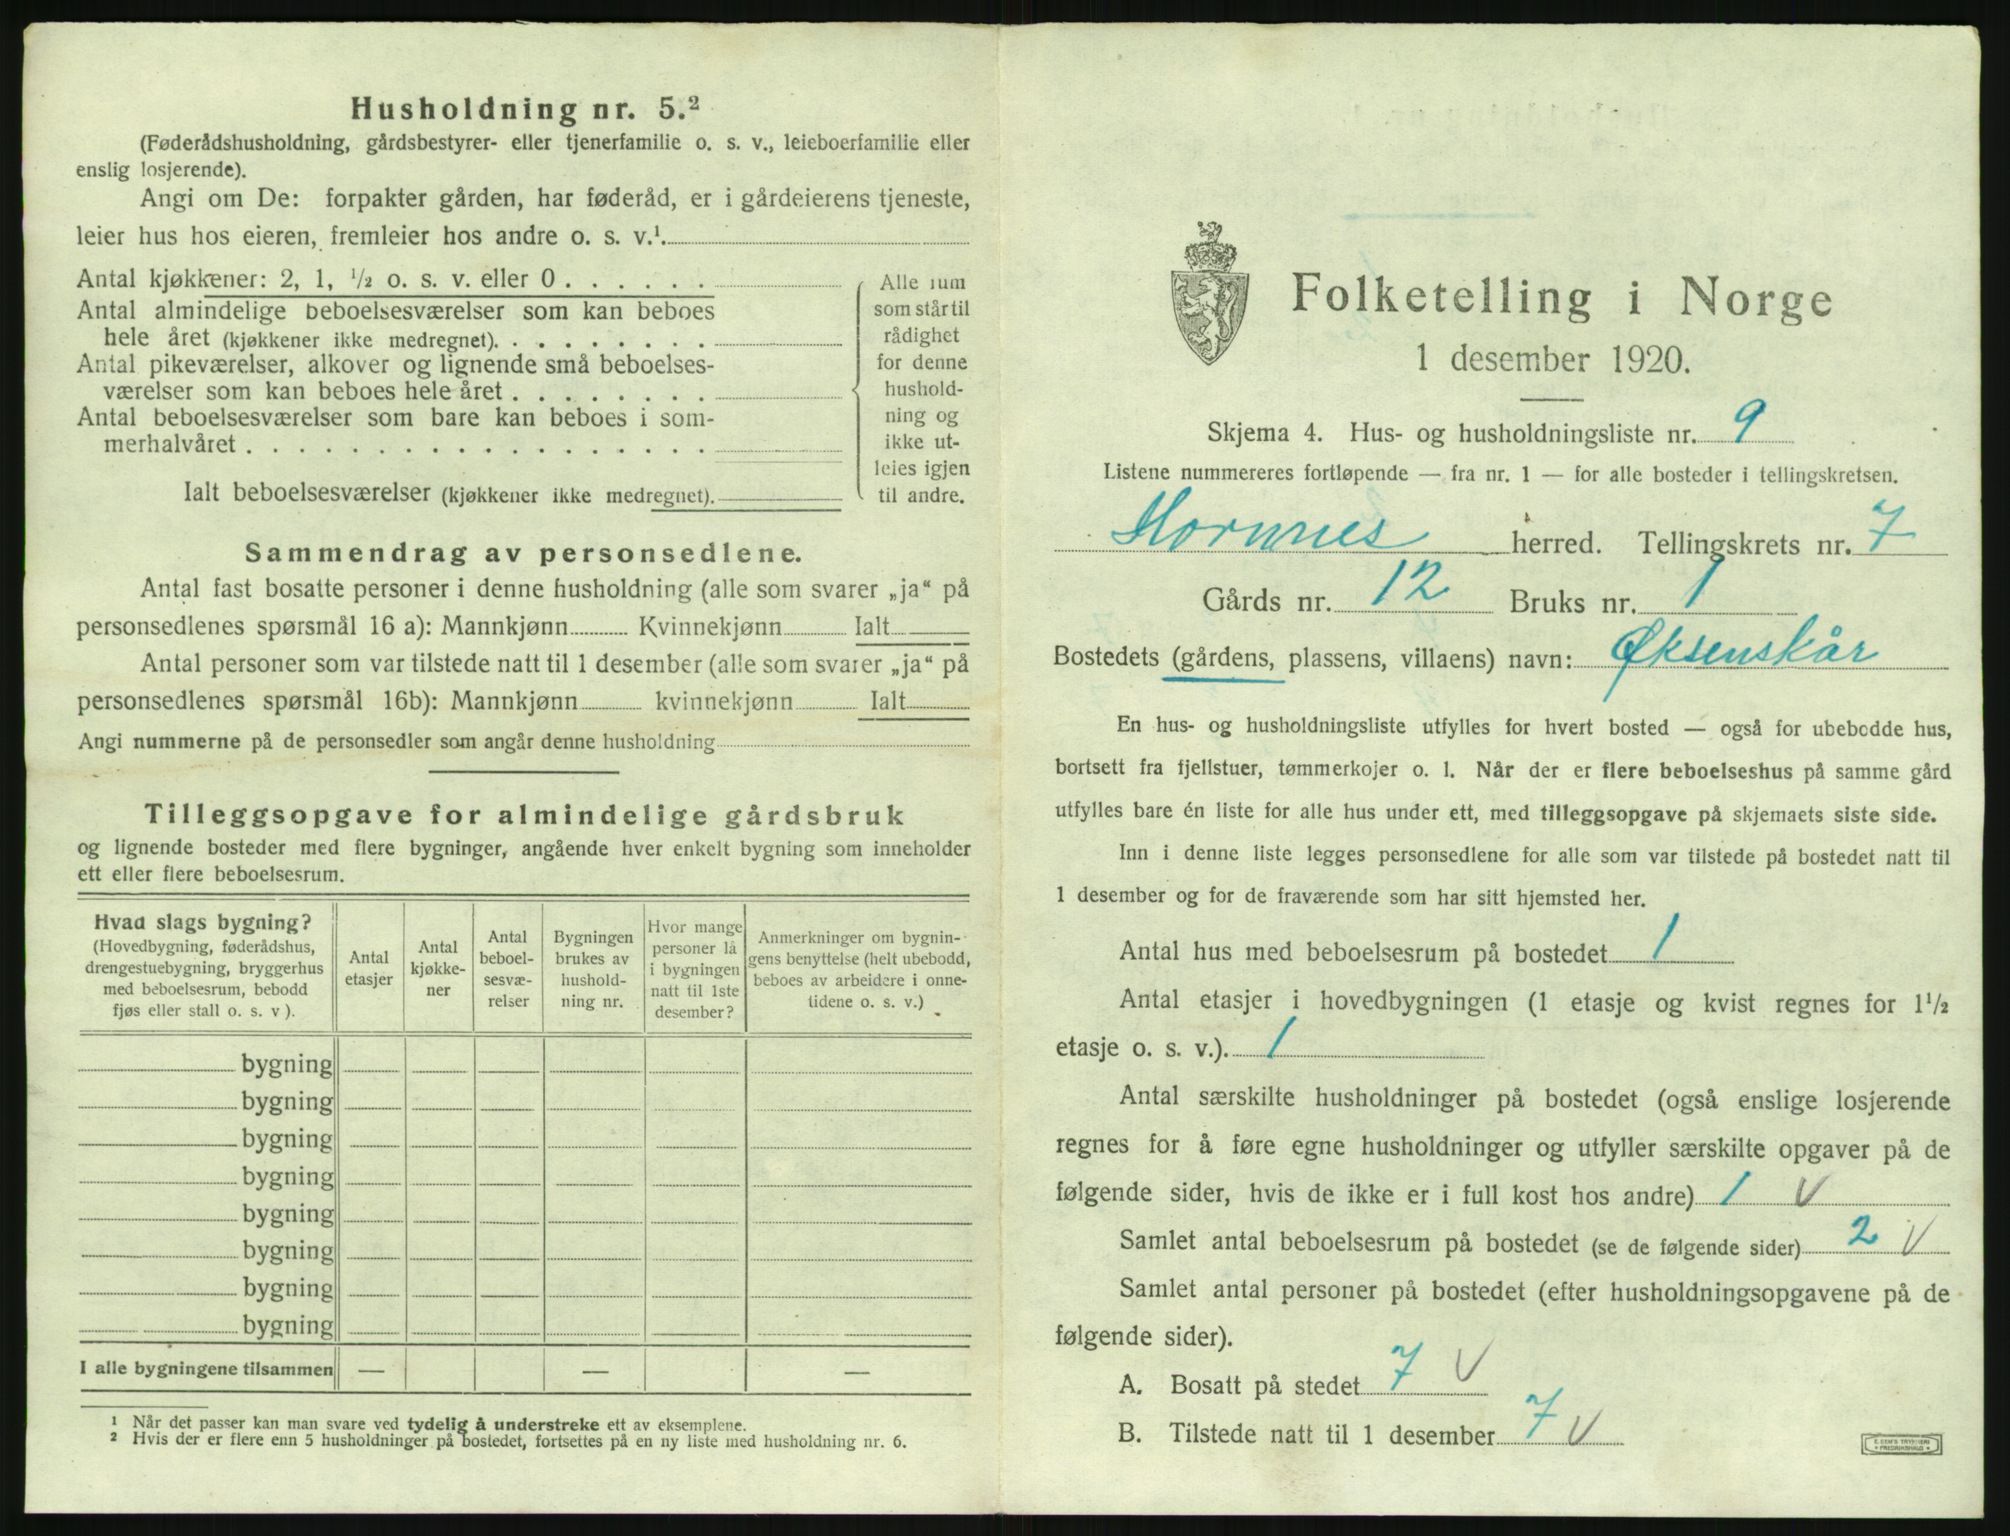 Husholdning nr. 5.²
(Føderådshusholdning, gårdsbestyrer- eller tjenerfamilie o. s. v., leieboerfamilie eller
enslig losjerende).
Angi om De: forpakter gården, har føderåd, er i gårdeierens tjeneste,
leier hus hos eieren, fremleier hos andre o. s. v.¹
Antal kjøkkener: 2, 1, ½ o. s. v. eller 0 . . . . . .
Antal almindelige beboelsesværelser som kan beboes
hele året (kjøkkener ikke medregnet). . . . . . . . .
Antal pikeværelser, alkover og lignende små beboelses-
værelser som kan beboes hele året . . . . . . . .
Antal beboelsesværelser som bare kan beboes i som-
merhalvåret . . . . . . . . . . . . . . . . . .
Ialt beboelsesværelser (kjøkkener ikke medregnet).
Alle rum
som står til
rådighet
for denne
hushold-
ning og
ikke ut-
leies igjen
til andre.
Sammendrag av personsedlene.
Antal fast bosatte personer i denne husholdning (alle som svarer „ja“ på
personsedlenes spørsmål 16 a): Mannkjønn Kvinnekjønn Ialt
Antal personer som var tilstede natt til 1 desember (alle som svarer „ja“ på
personsedlenes spørsmål 16b): Mannkjønn kvinnekjønn Ialt
Angi nummerne på de personsedler som angår denne husholdning
Tilleggsopgave for almindelige gårdsbruk
og lignende bosteder med flere bygninger, angående hver enkelt bygning som inneholder
ett eller flere beboelsesrum.
Hvad slags bygning?
(Hovedbygning, føderådshus,
drengestuebygning, bryggerhus
med beboelsesrum, bebodd
fjøs eller stall o. s. v ).
Antal
etasjer
Antal
kjøkke-
ner
Antal
beboel-
sesvæ-
relser
Bygningen
brukes av
hushold-
ning nr.
Hvor mange
personer lå
i bygningen
natt til 1ste
desember?
Anmerkninger om bygnin-
gens benyttelse (helt ubebodd,
beboes av arbeidere i onne-
tidene o. s. v.)
bygning
bygning
bygning
bygning
bygning
bygning
bygning
bygning
I alle bygningene tilsammen — — —
¹ Når det passer kan man svare ved tydelig å understreke ett av eksemplene.
² Hvis der er flere enn 5 husholdninger på bostedet, fortsettes på en ny liste med husholdning nr. 6.
Folketelling i Norge
1 desember 1920.
Skjema 4. Hus- og husholdningsliste nr. 9
Listene nummereres fortløpende — fra nr. 1 — for alle bosteder i tellingskretsen.
Hornnes herred. Tellingskrets nr. 7
Gårds nr. 12 Bruks nr. 1
Bostedets (gårdens, plassens, villaens) navn: Øksenskår
En hus- og husholdningsliste utfylles for hvert bosted — også for ubebodde hus,
bortsett fra fjellstuer, tømmerkojer o. l. Når der er flere beboelseshus på samme gård
utfylles bare én liste for alle hus under ett, med tilleggsopgave på skjemaets siste side.
Inn i denne liste legges personsedlene for alle som var tilstede på bostedet natt til
1 desember og for de fraværende som har sitt hjemsted her.
Antal hus med beboelsesrum på bostedet 1
Antal etasjer i hovedbygningen (1 etasje og kvist regnes for 1½
etasje o. s. v.). 1
Antal særskilte husholdninger på bostedet (også enslige losjerende
regnes for å føre egne husholdninger og utfyller særskilte opgaver på de
følgende sider, hvis de ikke er i full kost hos andre) 1 V
Samlet antal beboelsesrum på bostedet (se de følgende sider) 2 V
Samlet antal personer på bostedet (efter husholdningsopgavene på de
følgende sider).
A. Bosatt på stedet 7 V
B. Tilstede natt til 1 desember 7 V